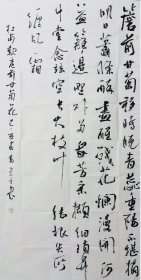 簷前甘菊移時晚青蕊重陽不堪摘
明日蕭條盡醉醒殘花爛漫開何
益籬邊野外多眾芳采擷細瑣升
中堂念茲空長大枝葉結根失所
纏風霜
杜甫歎庭前甘菊花